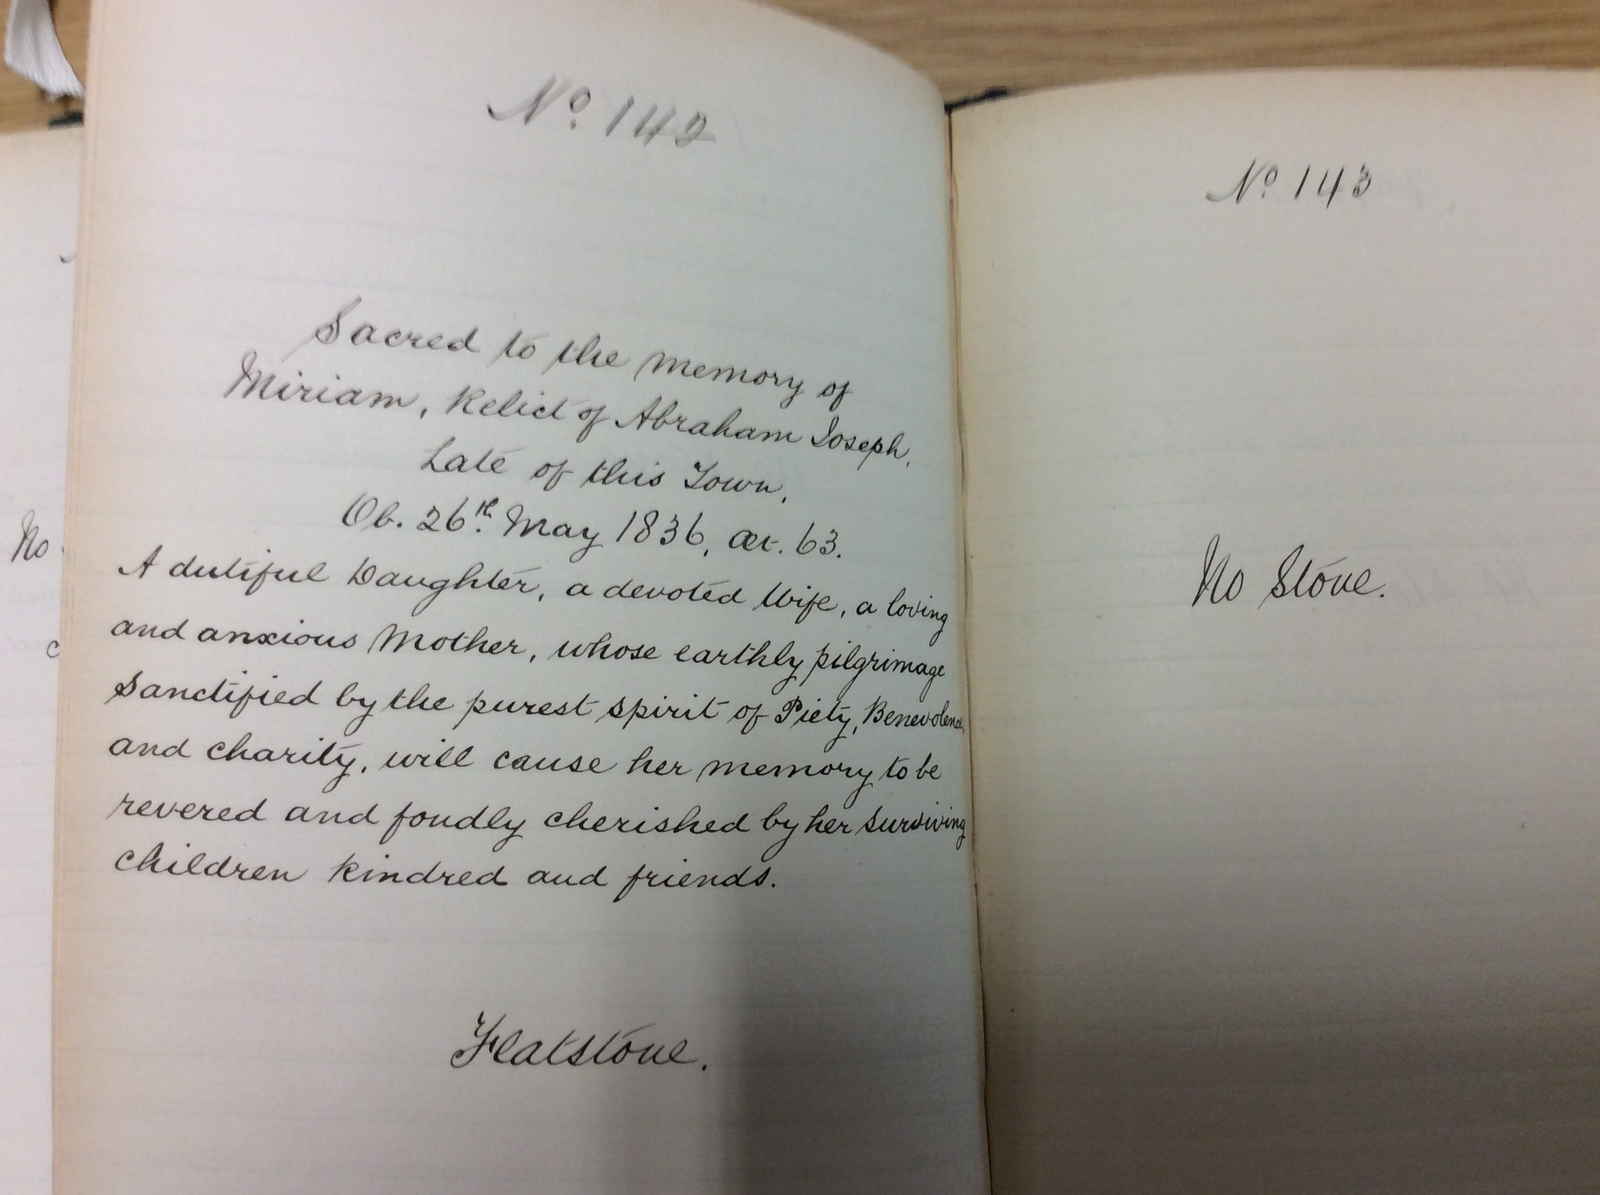 No. 142
Sacred to the memory of
Miriam, Relict of Abraham Joseph,
Late of this Town,
Ob. 26th May 1836, æt. 63.
A dutiful Daughter, a devoted Wife, a loving
and anxious Mother, whose earthly pilgrimage
Sanctified by the purest spirit of Piety, Benevolence,
and charity, will cause her memory to be
revered and fondly cherished by her surviving
children kindred and friends.
Flatstone.
No. 143
No Stone.
No